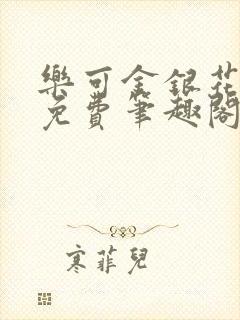 樂可金銀花
免費筆趣閣
寒菲兒